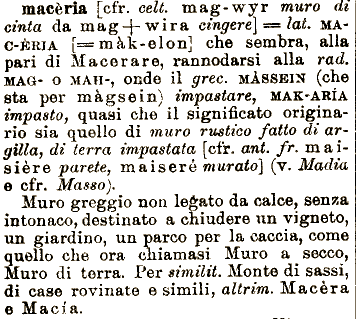 macèria [cfr. celt. mag-wyr muro di
cinta da mag+wira cingere] = lat. MA-
C-ÈRIA [= màk-elon] che sembra, alla
pari di Macerare, rannodarsi alla rad.
MAG- o MAH-, onde il grec. MÀSSEIN (che
sta per màgsein) impastare, MAK-ARÍA
impasto, quasi che il significato origina-
rio sia quello di muro rustico fatto di ar-
gilla, di terra impastata [cfr. ant. fr. mai-
sière parete, maiseré murato] (v. Madia
e cfr. Masso).
Muro greggio non legato da calce, senza
intonaco, destinato a chiudere un vigneto,
un giardino, un parco per la caccia, come
quello che ora chiamasi Muro a secco,
Muro di terra. Per similit. Monte di sassi,
di case rovinate e simili, altrim. Macèra
e Macía.